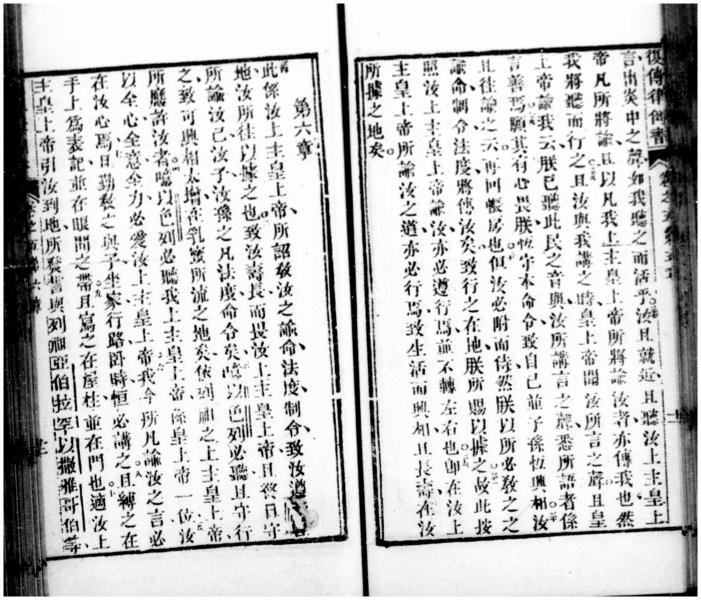 復傳律例書
言出炎中之聲如我聽之而活乎汝且就近且聽汝上主皇上
帝凡所將諭且以凡我上主皇上帝所將諭汝者亦傳我也然
我將聽而行之且汝與我講之時皇上帝聞汝所言之聲且皇
上帝諭我云朕已聽此民之音與汝所講言之聲悉所語者係
言善焉願其有心畏朕恆守本命令致自己並子孫恆興相汝
且往諭之云再回帳房也但汝必附而侍然朕以所必教之之
諭命制令法度將傳汝矣致行之在地朕所賜以據之故此按
照汝上主皇上帝諭汝亦必遵行焉並不轉左右也即在汝上
主皇上帝所諭汝之道亦必行焉致生活而興相且長壽在汝
所據之地矣
第六章
此係汝上主皇上帝所詔敎汝之諭命法度制令致汝遵
地汝所往以據之也致汝壽長而畏汝上主皇上帝且終日守
所諭汝已汝子汝孫之凡法度命令矣噫以色列必聽且守行
之致可興相太增在乳蜜所流之地矣依列祖之上主皇上帝
所應許汝者噫以色列必聽我上主皇上帝係皇上帝一位汝
以全心全意全力必愛汝上主皇上帝我今所凡諭汝之言必
在汝心焉日勤敎之與子坐家行路臥時恒必講之且縛之在
手上為表記並在眼間之帶且寫之在屋柱並在門也適汝上
主皇上帝引汝到地所發誓與列祖亞伯拉罕以撒雅哥伯等